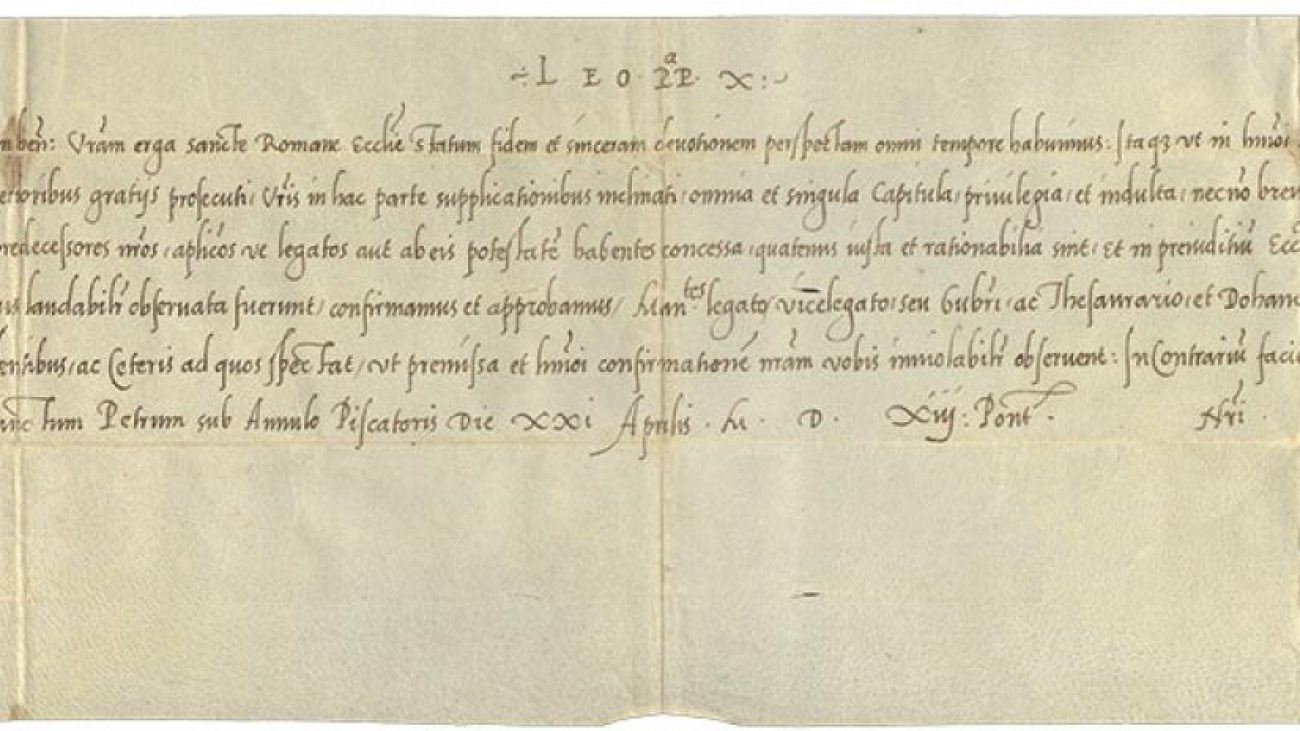 ÷ L E O · PP^a· X :~
n ben: Vrãm erga sancte Romane Eccĺie statum fidem et sinceram deuotionem perspectam omni tempore habuimus: Itaqꝫ vt in hmõi
erioribus gratijs prosecuti, Vrĩs in hac parte supplicationibus inclinati, omnia et singula Capitula, priuilegia, et indulta, necnõ breu
redecessores nrõs, aplicõs ve legatos aut ab eis potestatẽ habentes concessa, quatenus iusta et rationabilia sint, et in preiuditiũ Ecc
us laudabilr̃ obseruata fuerunt, confirmamus et approbamus, Man^tes legato, vicelegato, seu Gubr̃i, ac Thesaurario, et Dohan
entibus, ac Ceteris ad quos spectat, vt premissa et hmõi confirmationẽ nrãm vobis inuiolabilr̃ obseruent: In Contrariũ facie
anctum Petrum sub Annulo Piscatoris Die XXi Aprilis · M · D · Xiij: Pont̃ · Nrĩ ·